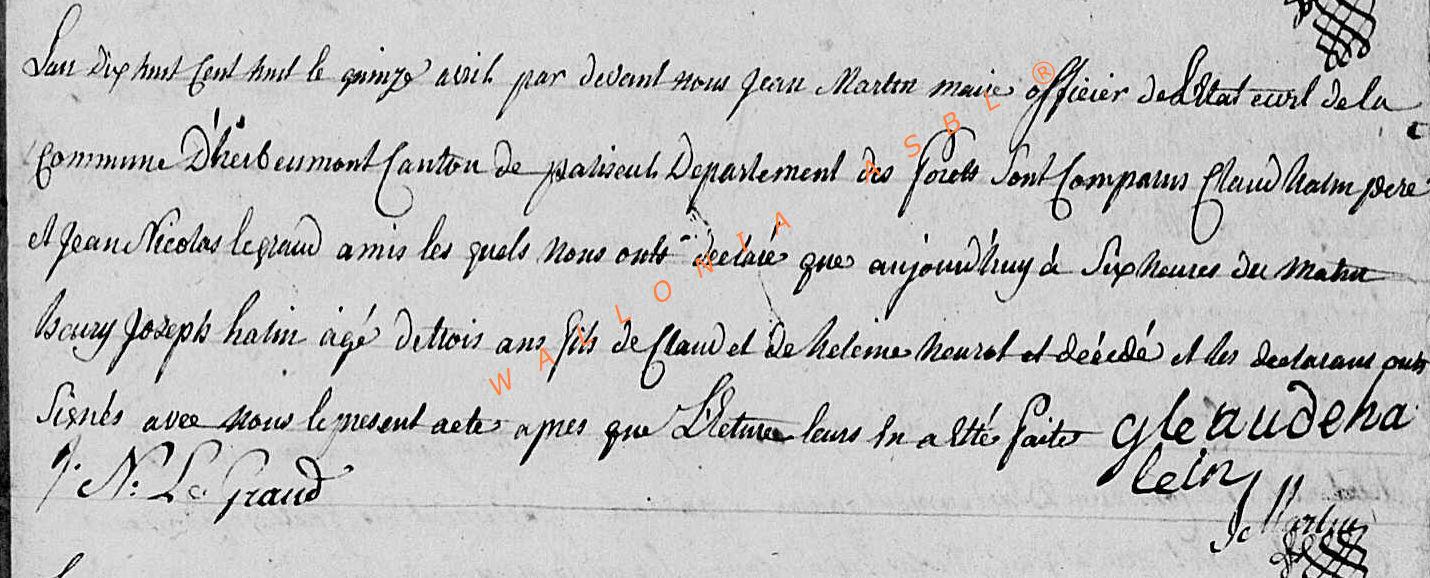 Lan dix huit Cent huit le quinze avril par devant nous Jean Martin maire officier de Letat civil de la
Commune D'herbeumont Canton de paliseul Departement des forets Sont Comparus Claud halin pere
et Jean Nicolas legrand amis les quels nous onts declaré que aujourd'huy à Six heures du matin
henry Joseph halin âgé de trois ans fils de Claud et de heleine et decedé et les declarans onts
Signés avec nous le present acte apres que Lecture leurs En a Etté faite gleaudeha
lein
J. N. Le Grand
J Martin
WALLONIA ASBL ®